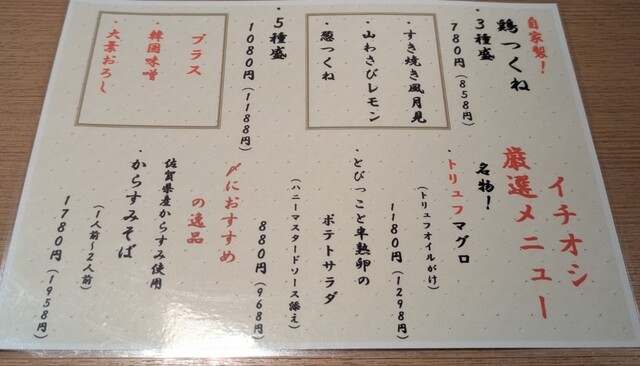 イチオシ
厳選メニュー
自家製!
鶏つくね
・3種盛
780円(858円)
・すき焼き風月見
・山わさびレモン
・葱つくね
・5種盛
1080円(1188円)
プラス
・韓国味噌
・大葉おろし
名物!
・トリュフマグロ
(トリュフオイルがけ)
1180円(1298円)
・とびっこと半熟卵の
ポテトサラダ
(ハニーマスタードソース添え)
880円(968円)
〆におすすめ
の逸品
佐賀県産からすみ使用
・からすみそば
(1人前~2人前)
1780円(1958円)